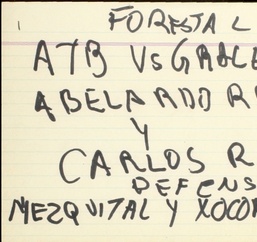 FORESTAL
ATB VS GRACE
ABELARDO R
Y
CARLOS R
DEFENS
MEZQUITAL Y XOCO